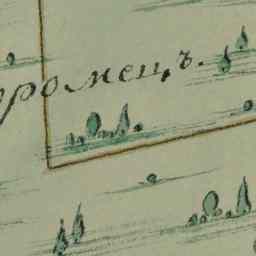 ромецъ.